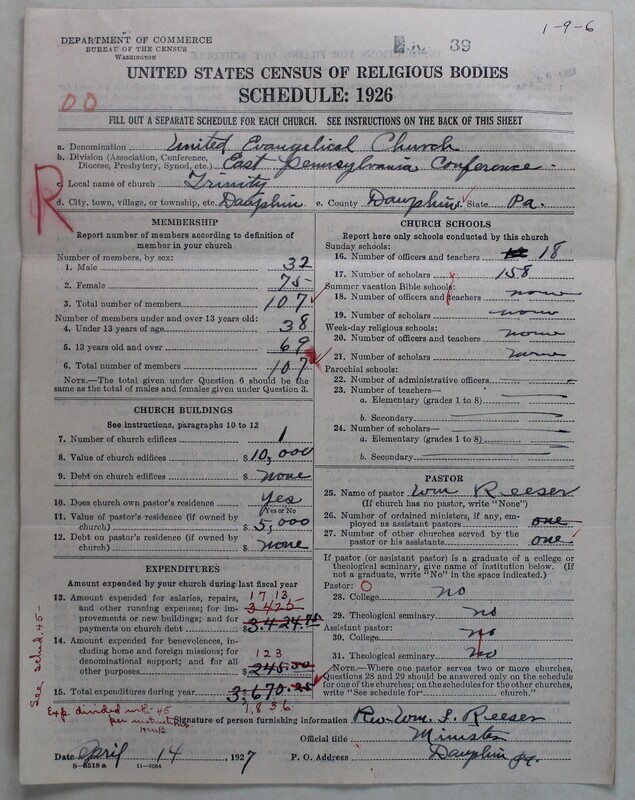 1-9-6
DEPARTMENT OF COMMERCE
BUREAU OF THE CENSUS
WASHINGTON
39
UNITED STATES CENSUS OF RELIGIOUS BODIES
SCHEDULE: 1926
DO
FILL OUT A SEPARATE SCHEDULE FOR EACH CHURCH. SEE INSTRUCTIONS ON THE BACK OF THIS SHEET
R
a. Denomination United Evangelical Church
b. Division (Association, Conference, Diocese, Presbytery, Synod, etc.) East Pennsylvania Conference
c. Local name of church Trinity
d. City, town, village, or township, etc. Dauphin e. County Dauphin f. State Pa.
MEMBERSHIP
Report number of members according to definition of member in your church
Number of members, by sex:
1. Male 32
2. Female 75
3. Total number of members 107
Number of members under and over 13 years old:
4. Under 13 years of age 38
5. 13 years old and over 69
6. Total number of members 107
NOTE.—The total given under Question 6 should be the same as the total of males and females given under Question 3.
CHURCH BUILDINGS
See instructions, paragraphs 10 to 12
7. Number of church edifices 1
8. Value of church edifices $10,000
9. Debt on church edifices $ none
10. Does church own pastor's residence yes
(Yes or No)
11. Value of pastor's residence (if owned by church) $5,000
12. Debt on pastor's residence (if owned by church) $ none
EXPENDITURES
Amount expended by your church during last fiscal year
13. Amount expended for salaries, repairs, and other running expenses; for improvements or new buildings; and for payments on church debt
1713
3425
$3.424.75
14. Amount expended for benevolences, including home and foreign missions; for denominational support; and for all other purposes
123
$245.50
15. Total expenditures during year $3,670.25
1,836
See sched. 45-
Exp. divided with 45
per instructions
CHURCH SCHOOLS
Report here only schools conducted by this church
Sunday schools:
16. Number of officers and teachers 18
17. Number of scholars 158
Summer vacation Bible schools:
18. Number of officers and teachers none
19. Number of scholars none
Week-day religious schools:
20. Number of officers and teachers none
21. Number of scholars none
Parochial schools:
22. Number of administrative officers
23. Number of teachers—
a. Elementary (grades 1 to 8)
b. Secondary
24. Number of scholars—
a. Elementary (grades 1 to 8)
b. Secondary
PASTOR
25. Name of pastor Wm Reeser
(If church has no pastor, write "None")
26. Number of ordained ministers, if any, employed as assistant pastors one
27. Number of other churches served by the pastor or his assistants one
If pastor (or assistant pastor) is a graduate of a college or theological seminary, give name of institution below. (If not a graduate, write "No" in the space indicated.)
Pastor:
28. College no
29. Theological seminary no
Assistant pastor:
30. College no
31. Theological seminary no
NOTE.—Where one pastor serves two or more churches, Questions 28 and 29 should be answered only on the schedule for one of the churches; on the schedules for the other churches, write "See schedule for church."
Signature of person furnishing information Rev. Wm. L. Reeser
Official title Minister
Date April 14, 1927 P. O. Address Dauphin Pa.
8-5518 a